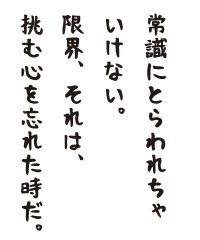 常識にとらわれちゃ
いけない。
限界、それは、
挑む心を忘れた時だ。